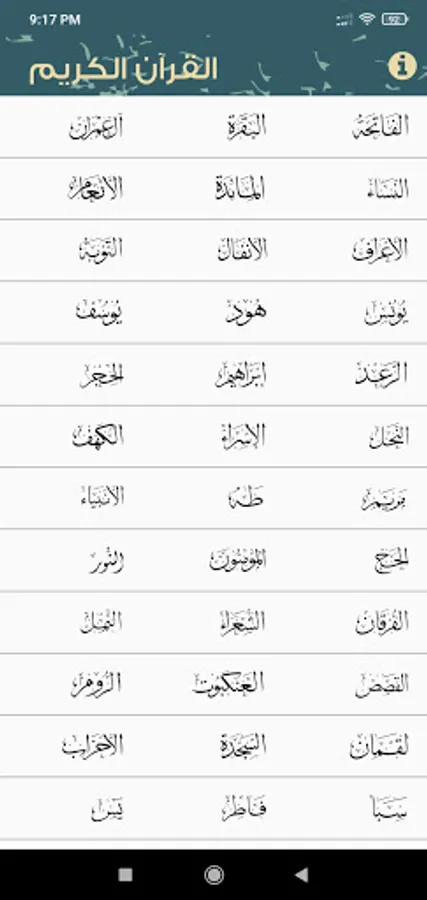 9:17 PM 92
القرآن الكريم
الفَاتِحَة البَقَرَة آل عِمْرَان
النِّسَاء المَائدَة الأنعَام
الأعرَاف الأنفَال التّوبَة
يُونس هُود يُوسُف
الرَّعْد إبراهِيم الحِجْر
النَّحْل الإسْرَاء الكَهْف
مَريَم طه الأنبيَاء
الحَج المُؤمنون النُّور
الفُرقَان الشُّعَرَاء النَّمل
القَصَص العَنكبوت الرُّوم
لقمَان السَّجدَة الأحزَاب
سَبَأ فَاطِر يَس